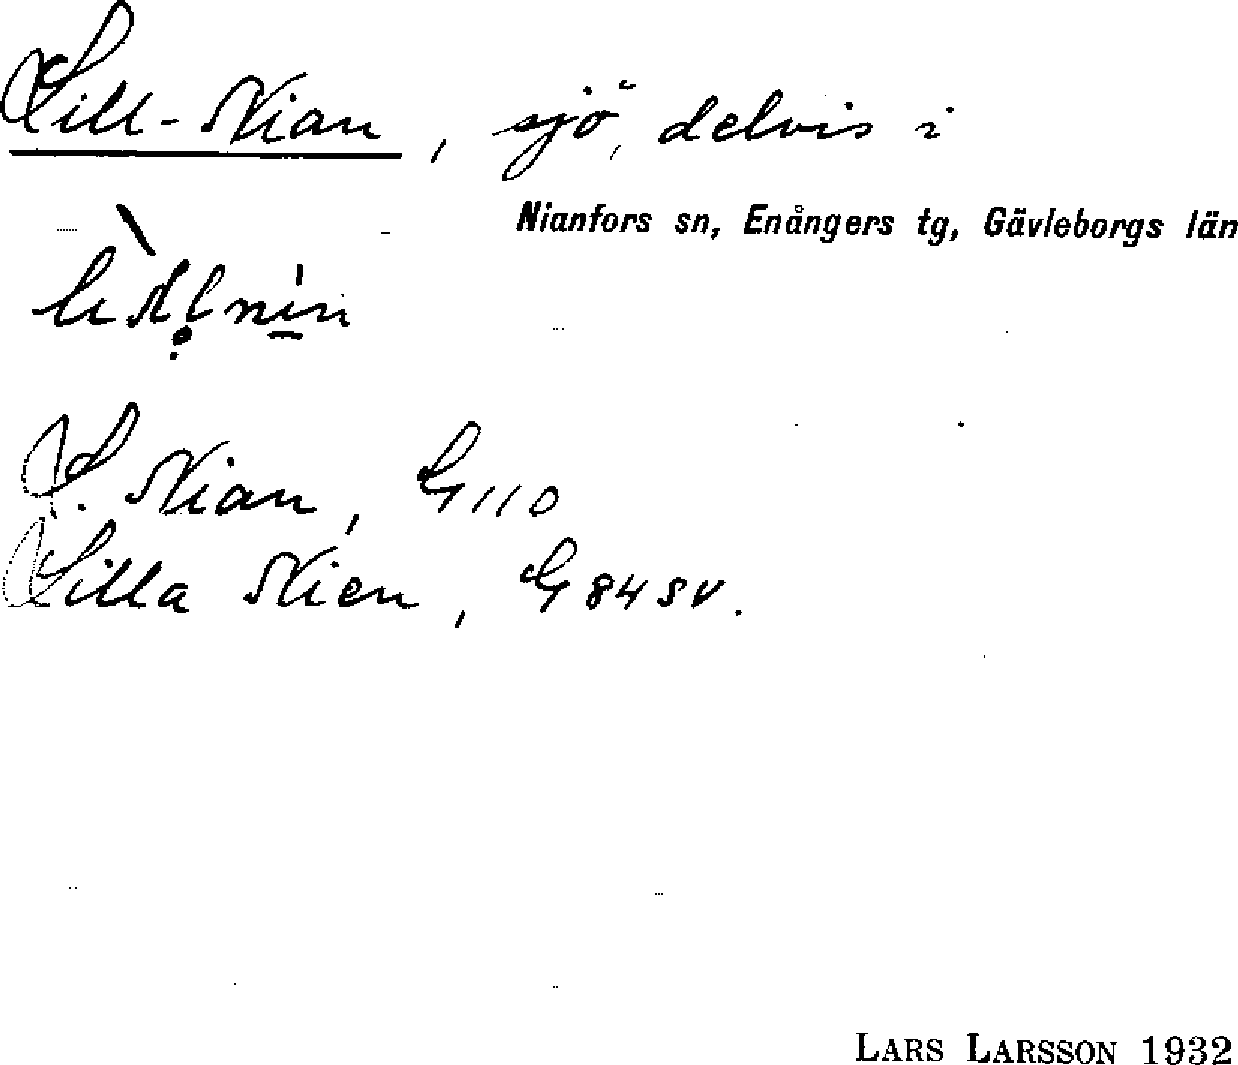 Lill-Nian, sjö, delvis i
Nianfors sn, Enångers tg, Gävleborgs län
L. Nian, G110
Lilla Nien, G84SV.
LARS LARSSON 1932